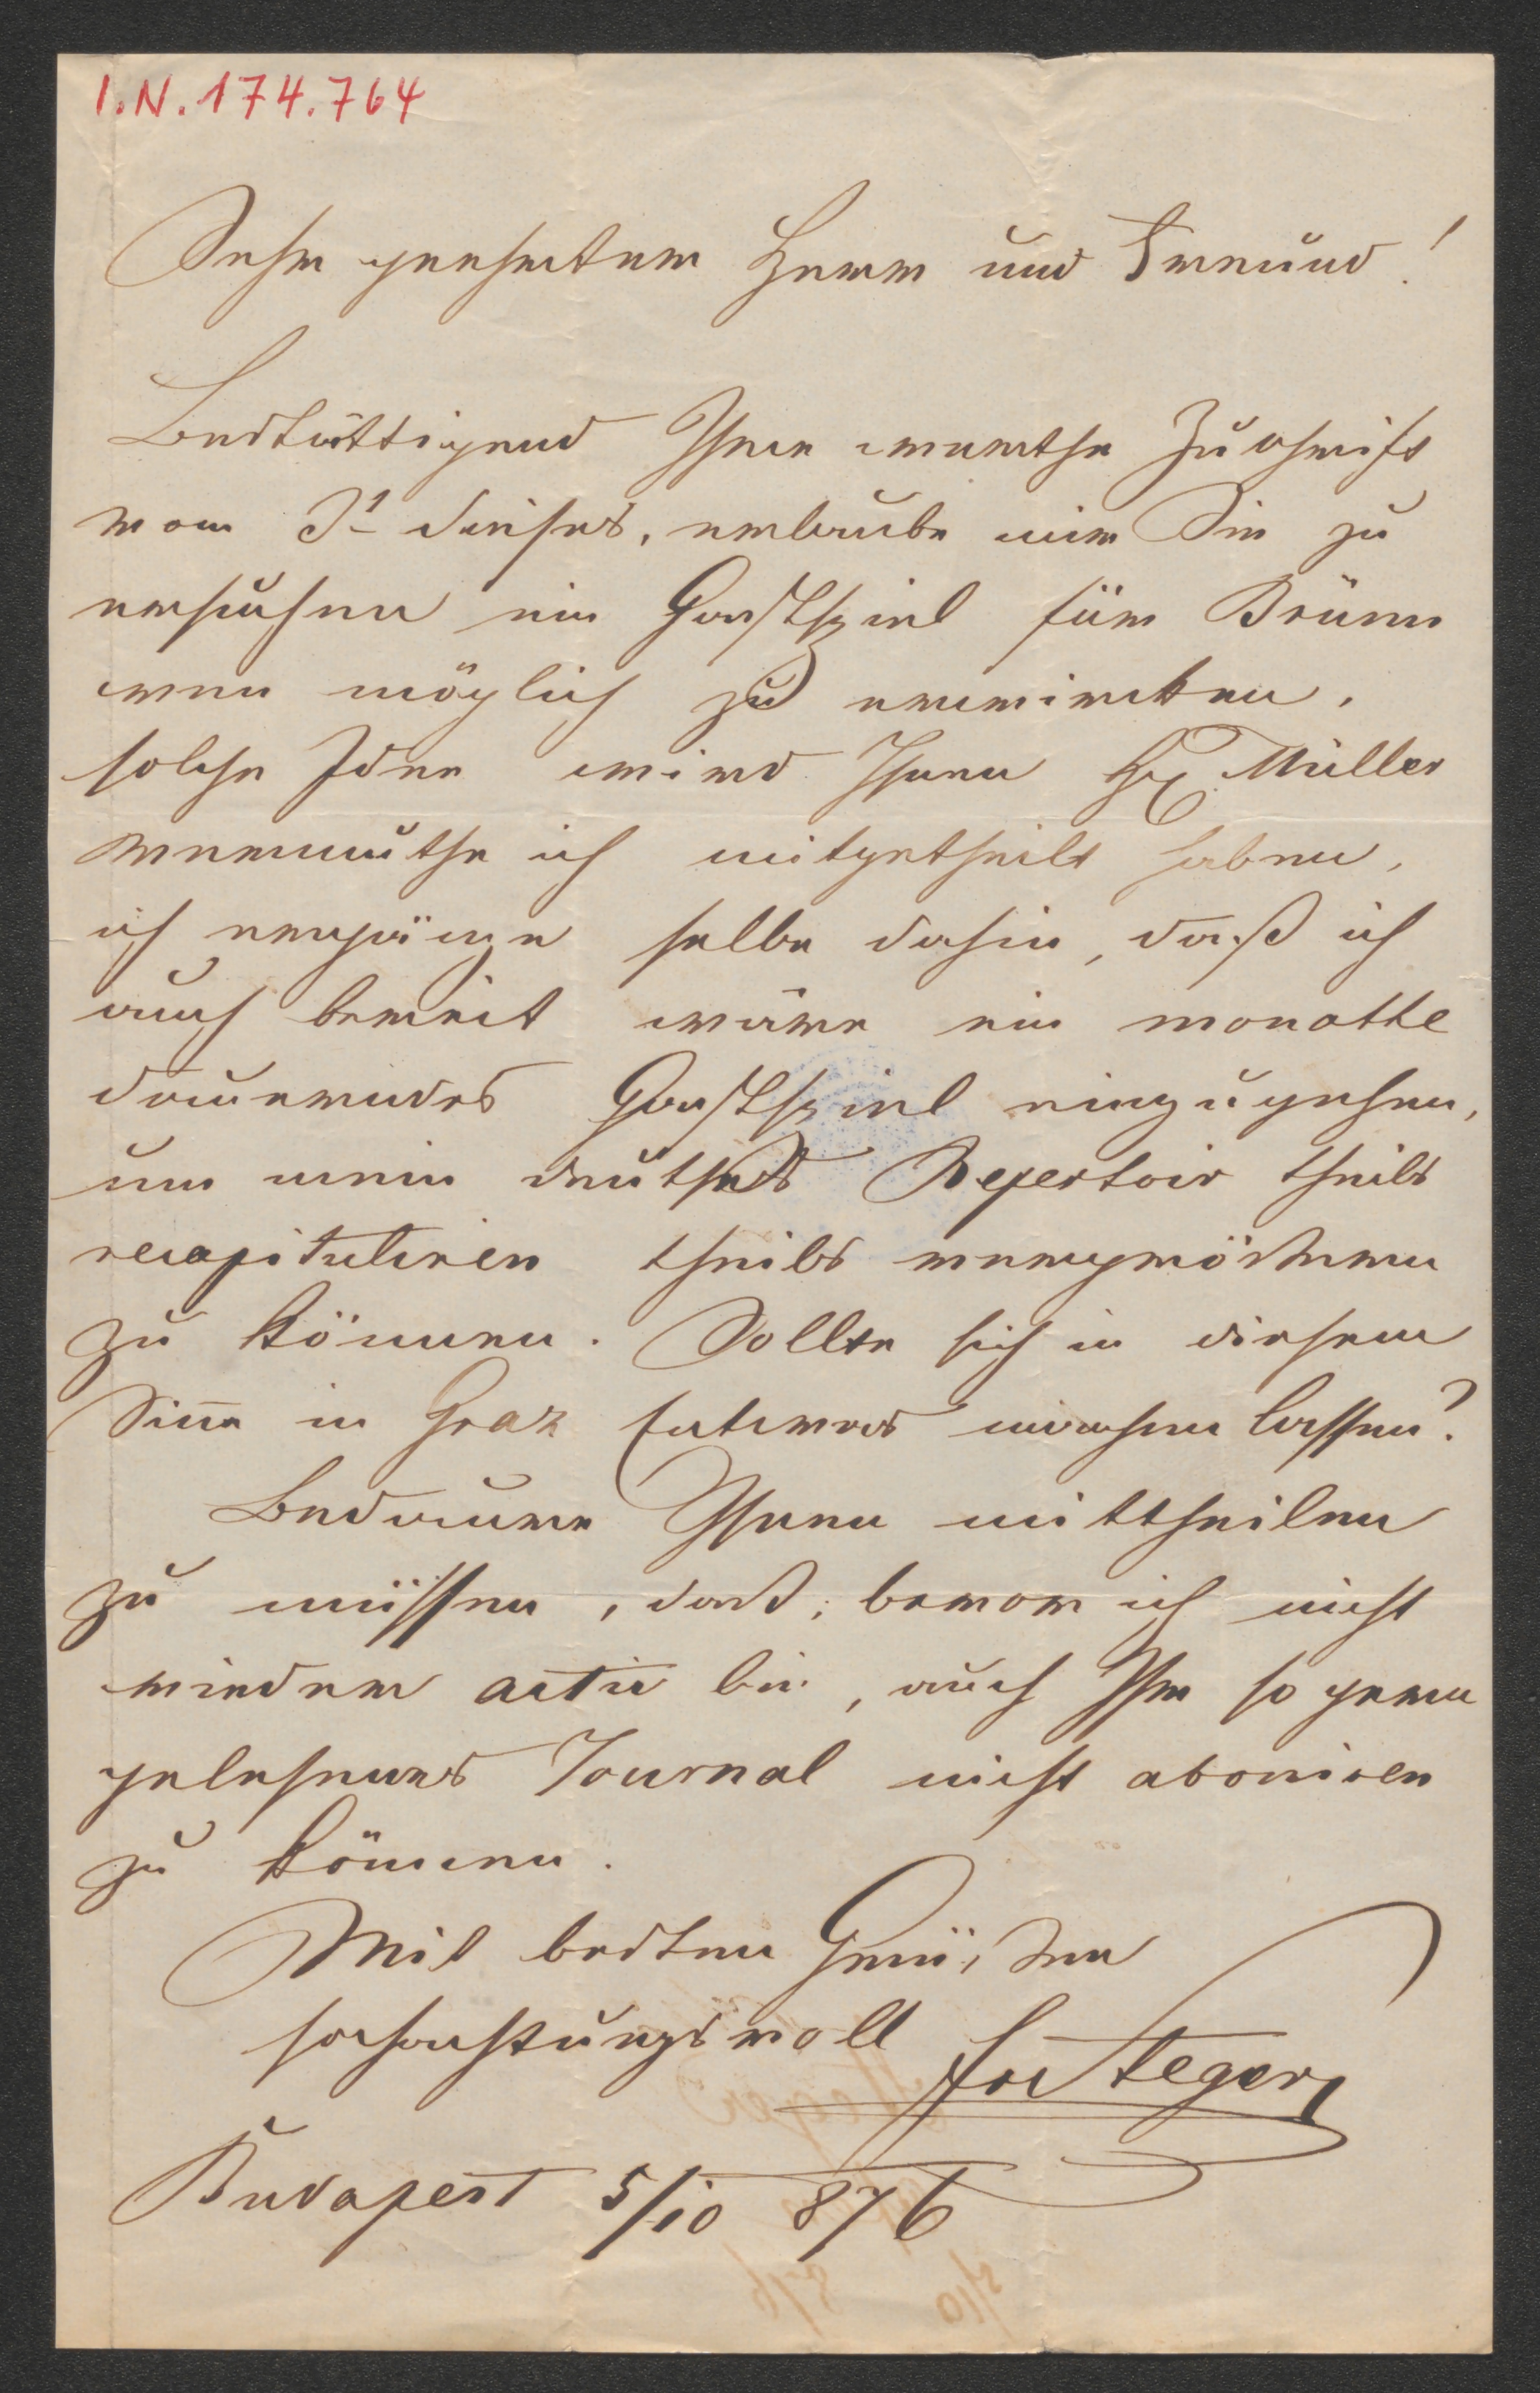 I.N. 174.764
Sehr geehrter Herr und Freund!
Bestättigend Ihre werthe Zuschrift
vom 3t dieses, erlaube mir Sie zu
ersuchen ein Gastspiel für Brünn
wen möglich zu erwirken.
solche Idee wird Ihnen Hr Müller
vermuthe ich mitgetheilt haben,
ich ergänze selbe dahin, daß ich
auch bereit wäre ein monatte
dauerndes Gastspiel einzugehen,
um mein deutsches Repertoir theils
recapituliren theils vergrößern
zu können. Sollte sich in diesem
Sinne in Graz Entwas machen lassen?
Bedaure Ihnen mittheilen
zu müssen, das, bevor ich nicht
wieder activ bin, auch Ihr so gern
gelesenes Journal nicht aboniren
zu können.
Mit besten Grüssen
hochachtungsvoll
Fr. Steger
Budapest 5/10 876